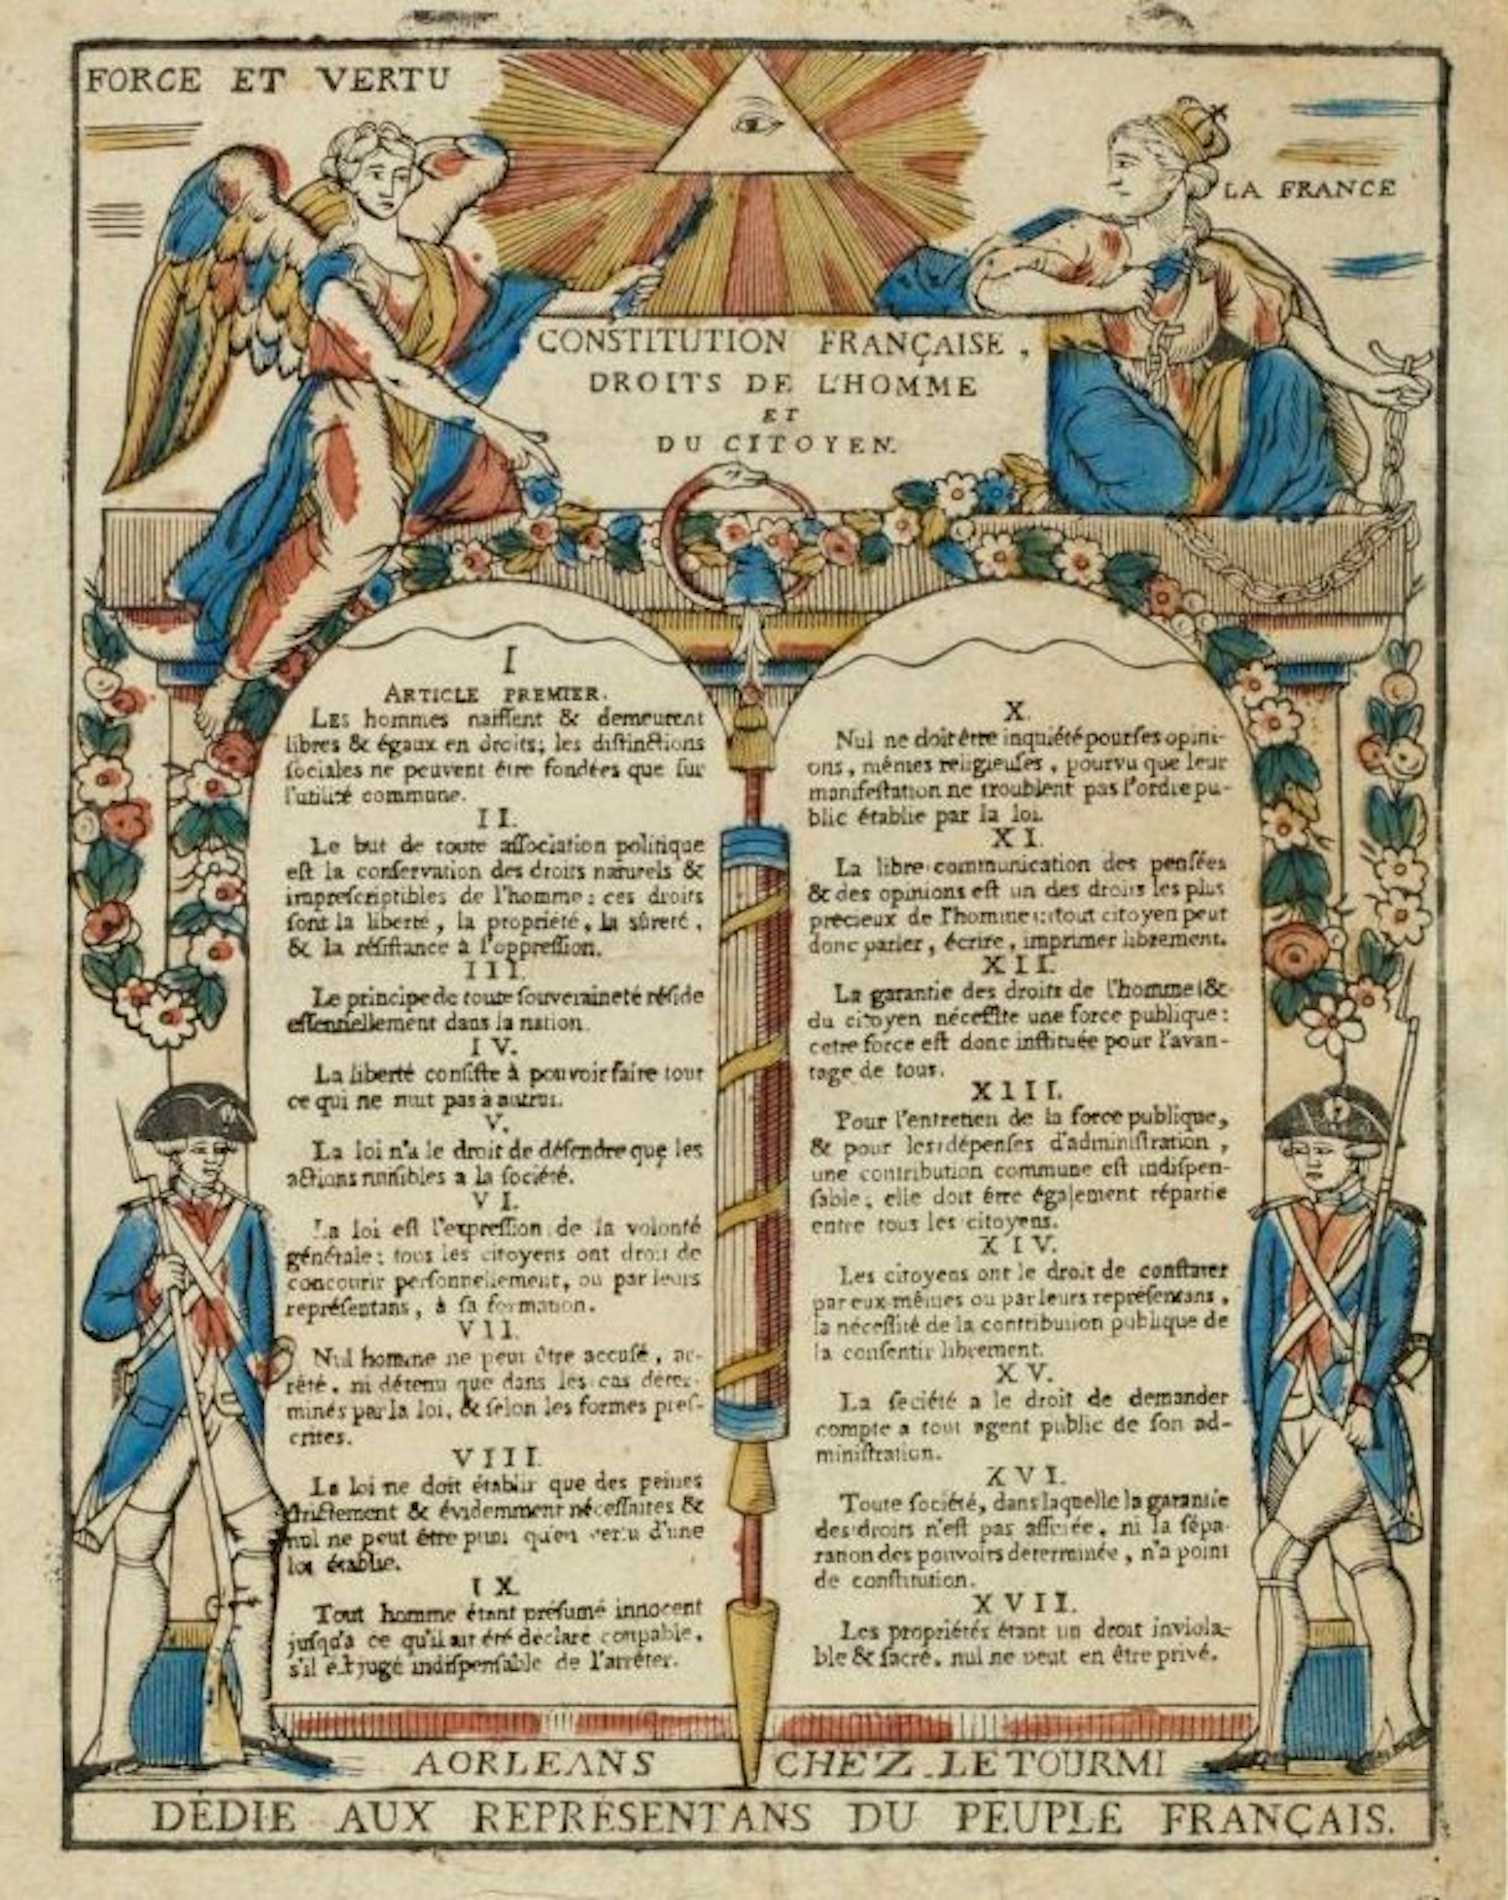 FORCE ET VERTU
LA FRANCE
CONSTITUTION FRANÇAISE,
DROITS DE L'HOMME
ET
DU CITOYEN.
I
ARTICLE PREMIER.
LES hommes naiſſent & demeurent
libres & égaux en droits; les diſtinctions
ſociales ne peuvent être fondées que ſur
l'utilité commune.
II.
Le but de toute aſſociation politique
eſt la conſervation des droits naturels &
impreſcriptibles de l'homme: ces droits
ſont la liberté, la propriété, la sûreté,
& la réſiſtance à l'oppreſſion.
III.
Le principe de toute ſouveraineté réſide
eſſentiellement dans la nation.
IV.
La liberté conſiſte à pouvoir faire tout
ce qui ne nuit pas à autrui.
V.
La loi n'a le droit de défendre que les
actions nuiſibles a la ſociété.
VI.
La loi eſt l'expreſſion de la volonté
générale; tous les citoyens ont droit de
concourir perſonnellement, ou par leurs
repréſentans, à ſa formation.
VII.
Nul homme ne peut être accuſé, ar-
rêté, ni détenu que dans les cas déter-
minés par la loi, & ſelon les formes preſ-
crites.
VIII.
La loi ne doit établir que des peines
ſtrictement & évidemment néceſſaires &
nul ne peut être puni qu'en vertu d'une
loi établie.
IX
Tout homme étant préſumé innocent
juſqu'à ce qu'il ait été déclaré coupable,
s'il eſt jugé indiſpenſable de l'arrêter.
X.
Nul ne doit être inquiété pour ſes opini-
ons, mêmes religieuſes, pourvu que leur
manifeſtation ne troublent pas l'ordre pu-
blic établie par la loi.
XI.
La libre communication des penſées
& des opinions eſt un des droits les plus
précieux de l'homme: tout citoyen peut
donc parler, écrire, imprimer librement.
XII.
La garantie des droits de l'homme &
du citoyen néceſſite une force publique:
cette force eſt donc inſtituée pour l'avan-
tage de tous.
XIII.
Pour l'entretien de la force publique,
& pour les dépenſes d'adminiſtration,
une contribution commune eſt indiſpen-
ſable; elle doit être également répartie
entre tous les citoyens.
XIV.
Les citoyens ont le droit de conſtater
par eux-mêmes ou par leurs repréſentans,
la néceſſité de la contribution publique de
la conſentir librement.
XV.
La ſociété a le droit de demander
compte a tout agent public de ſon ad-
miniſtration.
XVI.
Toute ſociété, dans laquelle la garantie
des droits n'eſt pas aſſurée, ni la ſépa-
ration des pouvoirs determinée, n'a point
de conſtitution.
XVII.
Les propriétés étant un droit inviola-
ble & ſacré, nul ne peut en être privé.
A ORLEANS CHEZ LETOURMI
DÉDIE AUX REPRÉSENTANS DU PEUPLE FRANÇAIS.